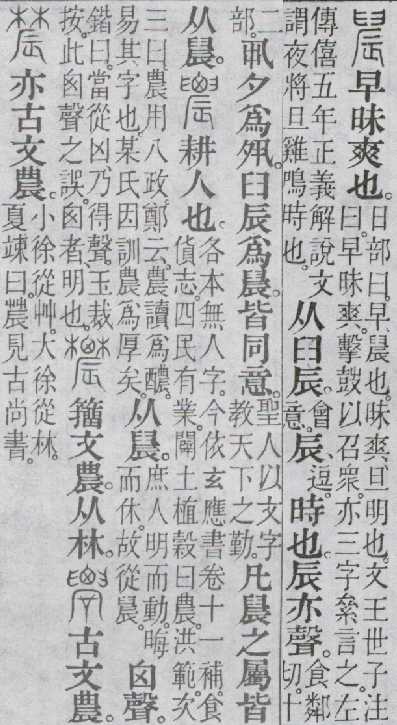 䢅早昧爽也。
日部曰。早、晨也。昧爽、旦明也。文王世子注
曰。早昧爽。擊鼓以召衆。亦三字絫言之。左
傳僖五年正義解說文
謂夜將旦雞鳴時也。
从臼辰。
會
意。
辰、
逗。
時也。辰亦聲。
食鄰
切。十
二
部。
𠃨夕爲𡖊。臼辰爲晨。皆同意。
聖人以文字
教天下之勤。
凡晨之屬皆
从晨。
耕人也。
各本無人字。今依玄應書卷十一補。食
貨志。四民有業。闢土植穀曰農。洪範次
三曰。農用八政。鄭云。農讀爲醲。
易其字也。某氏因訓農爲厚矣。
从晨。
庶人明而動。晦
而休。故從晨。
囟聲。
鍇曰。當從凶乃得聲。玉裁
按。此囟聲之誤。囟者、明也。
籒文農。从林。
古文農。
亦古文農。
小徐從艸。大徐從林。
夏竦曰。䢉見古尚書。